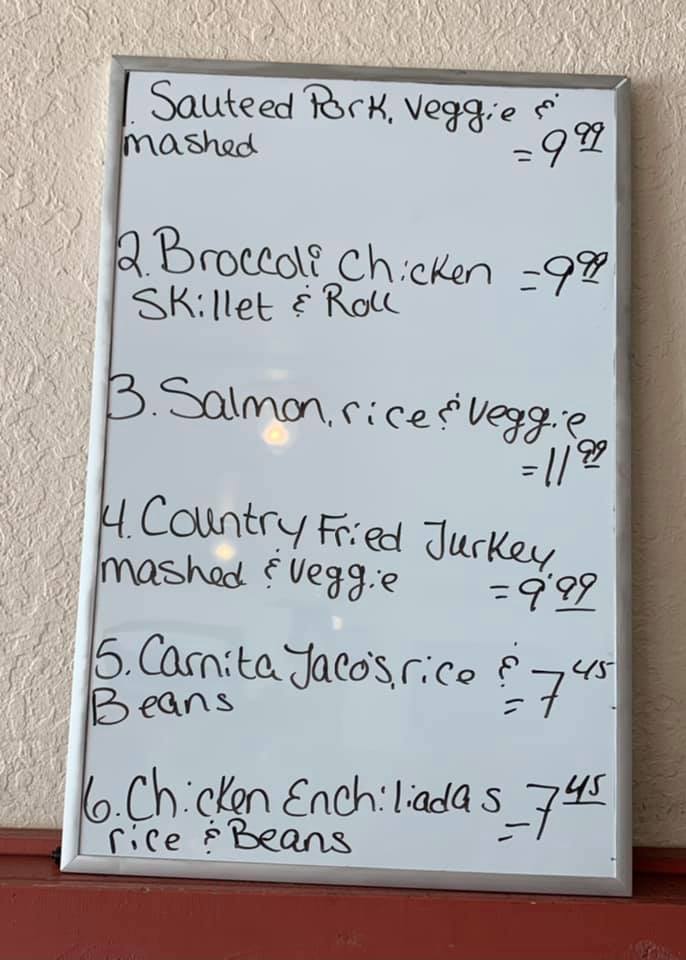 1. Sauteed Pork, Veggie &
mashed = 9 99
2. Broccoli Chicken = 9 99
Skillet & Roll
3. Salmon, rice & Veggie
= 11 99
4. Country Fried Turkey
mashed & Veggie = 9 99
5. Carnita Taco's, rice & = 7 45
Beans
6. Chicken Enchiliadas = 7 45
rice & Beans